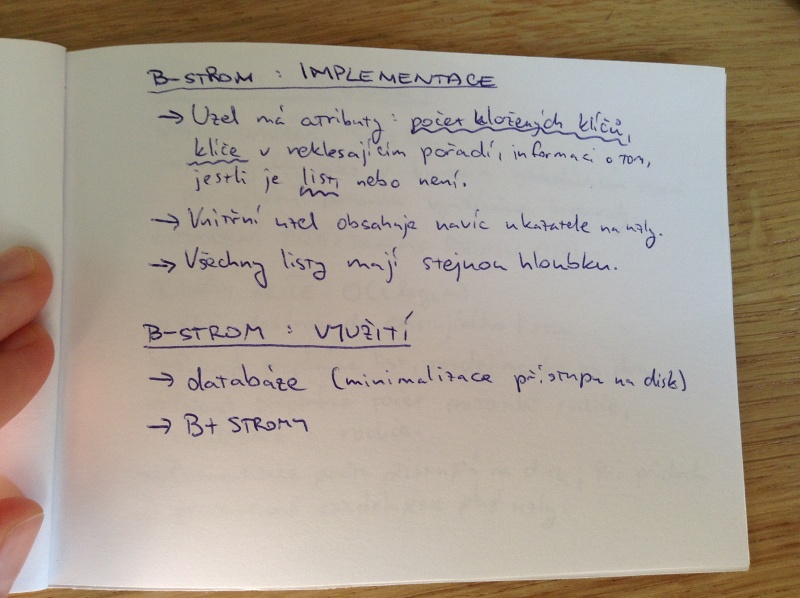 B-STROM : IMPLEMENTACE
→ Uzel má atributy: počet uložených klíčů,
klíče v neklesajícím pořadí, informaci o tom,
jestli je list, nebo není.
→ Vnitřní uzel obsahuje navíc ukazatele na uzly.
→ Všechny listy mají stejnou hloubku.
B-STROM : VYUŽITÍ
→ databáze (minimalizace přístupu na disk)
→ B+ STROMY